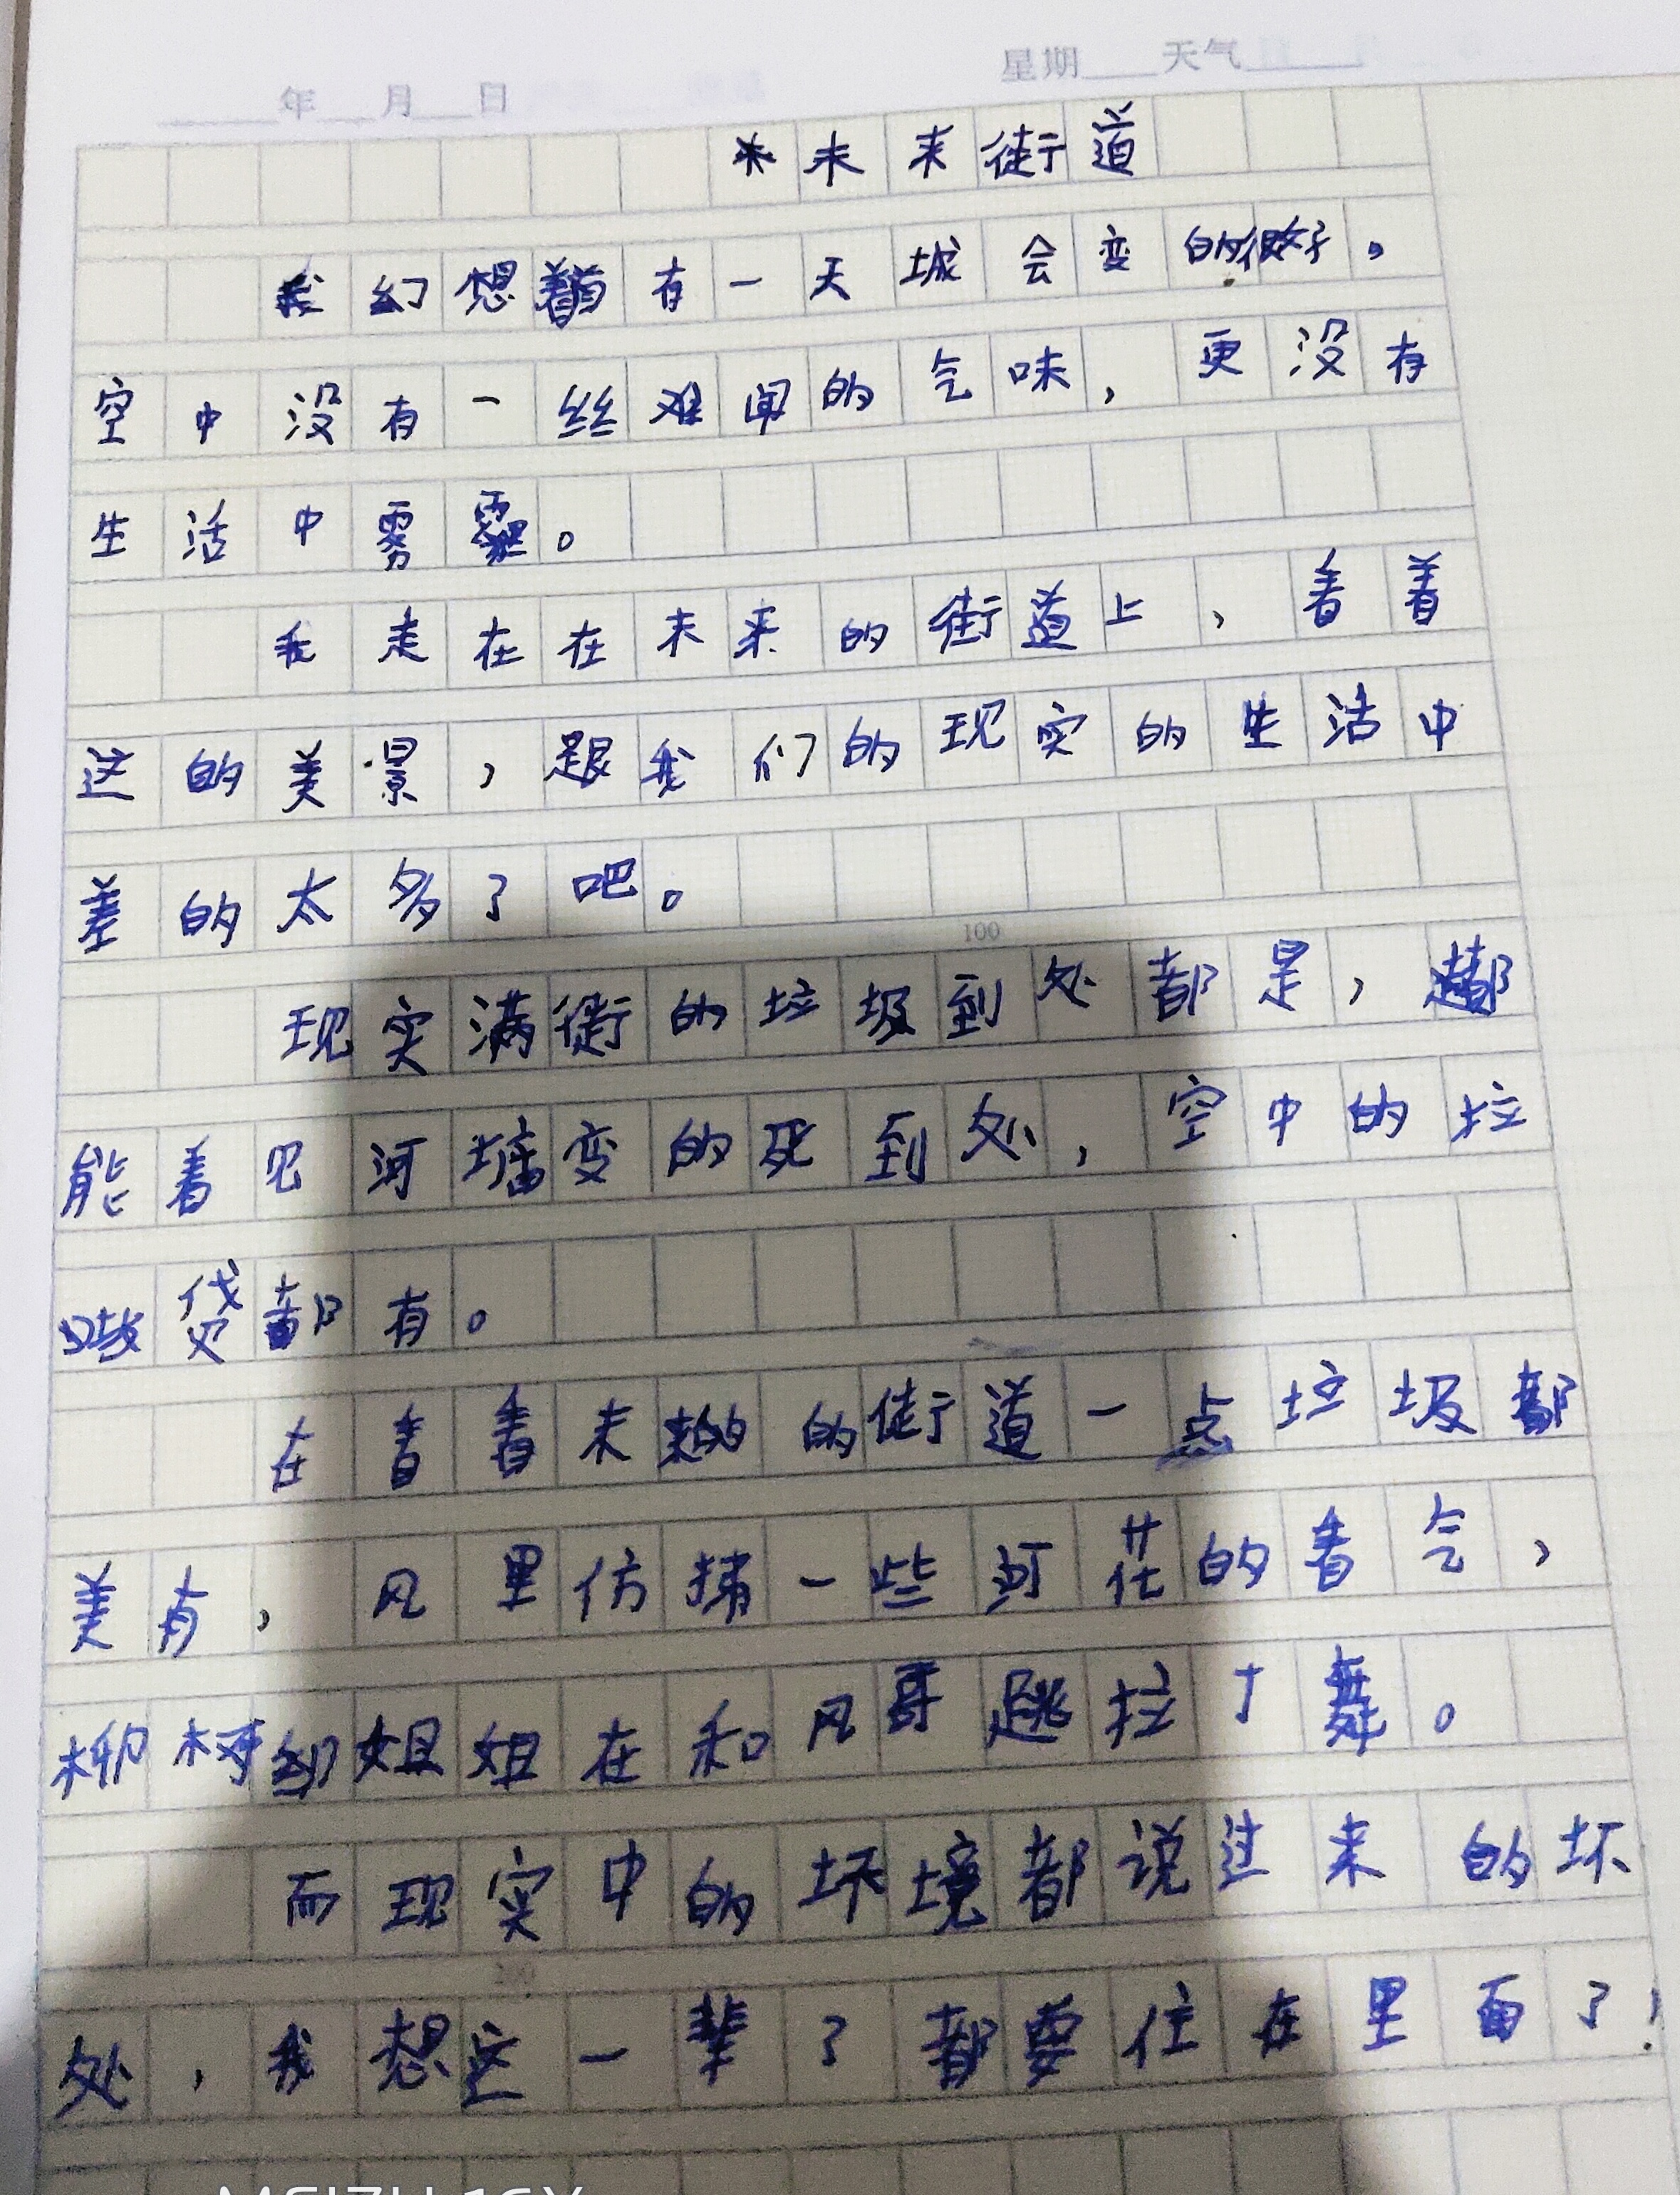 年 月 日 星期 天气
未来街道
我幻想着有一天城会变的很好。
空中没有一丝难闻的气味，更没有
生活中雾霾。
我走在在未来的街道上，看着
这的美景，跟我们的现实的生活中
差的太多了吧。
100
现实满街的垃圾到处都是，都
能看见河墙变的死到处，空中的垃
圾袋都有。
在看看未来的的街道一点垃圾都
美有，风里仿捕一些河花的香气，
柳树姐姐在和风哥跳拉丁舞。
而现实中的坏境都说过来的坏
200
处，我想这一辈了都要住在里面了！